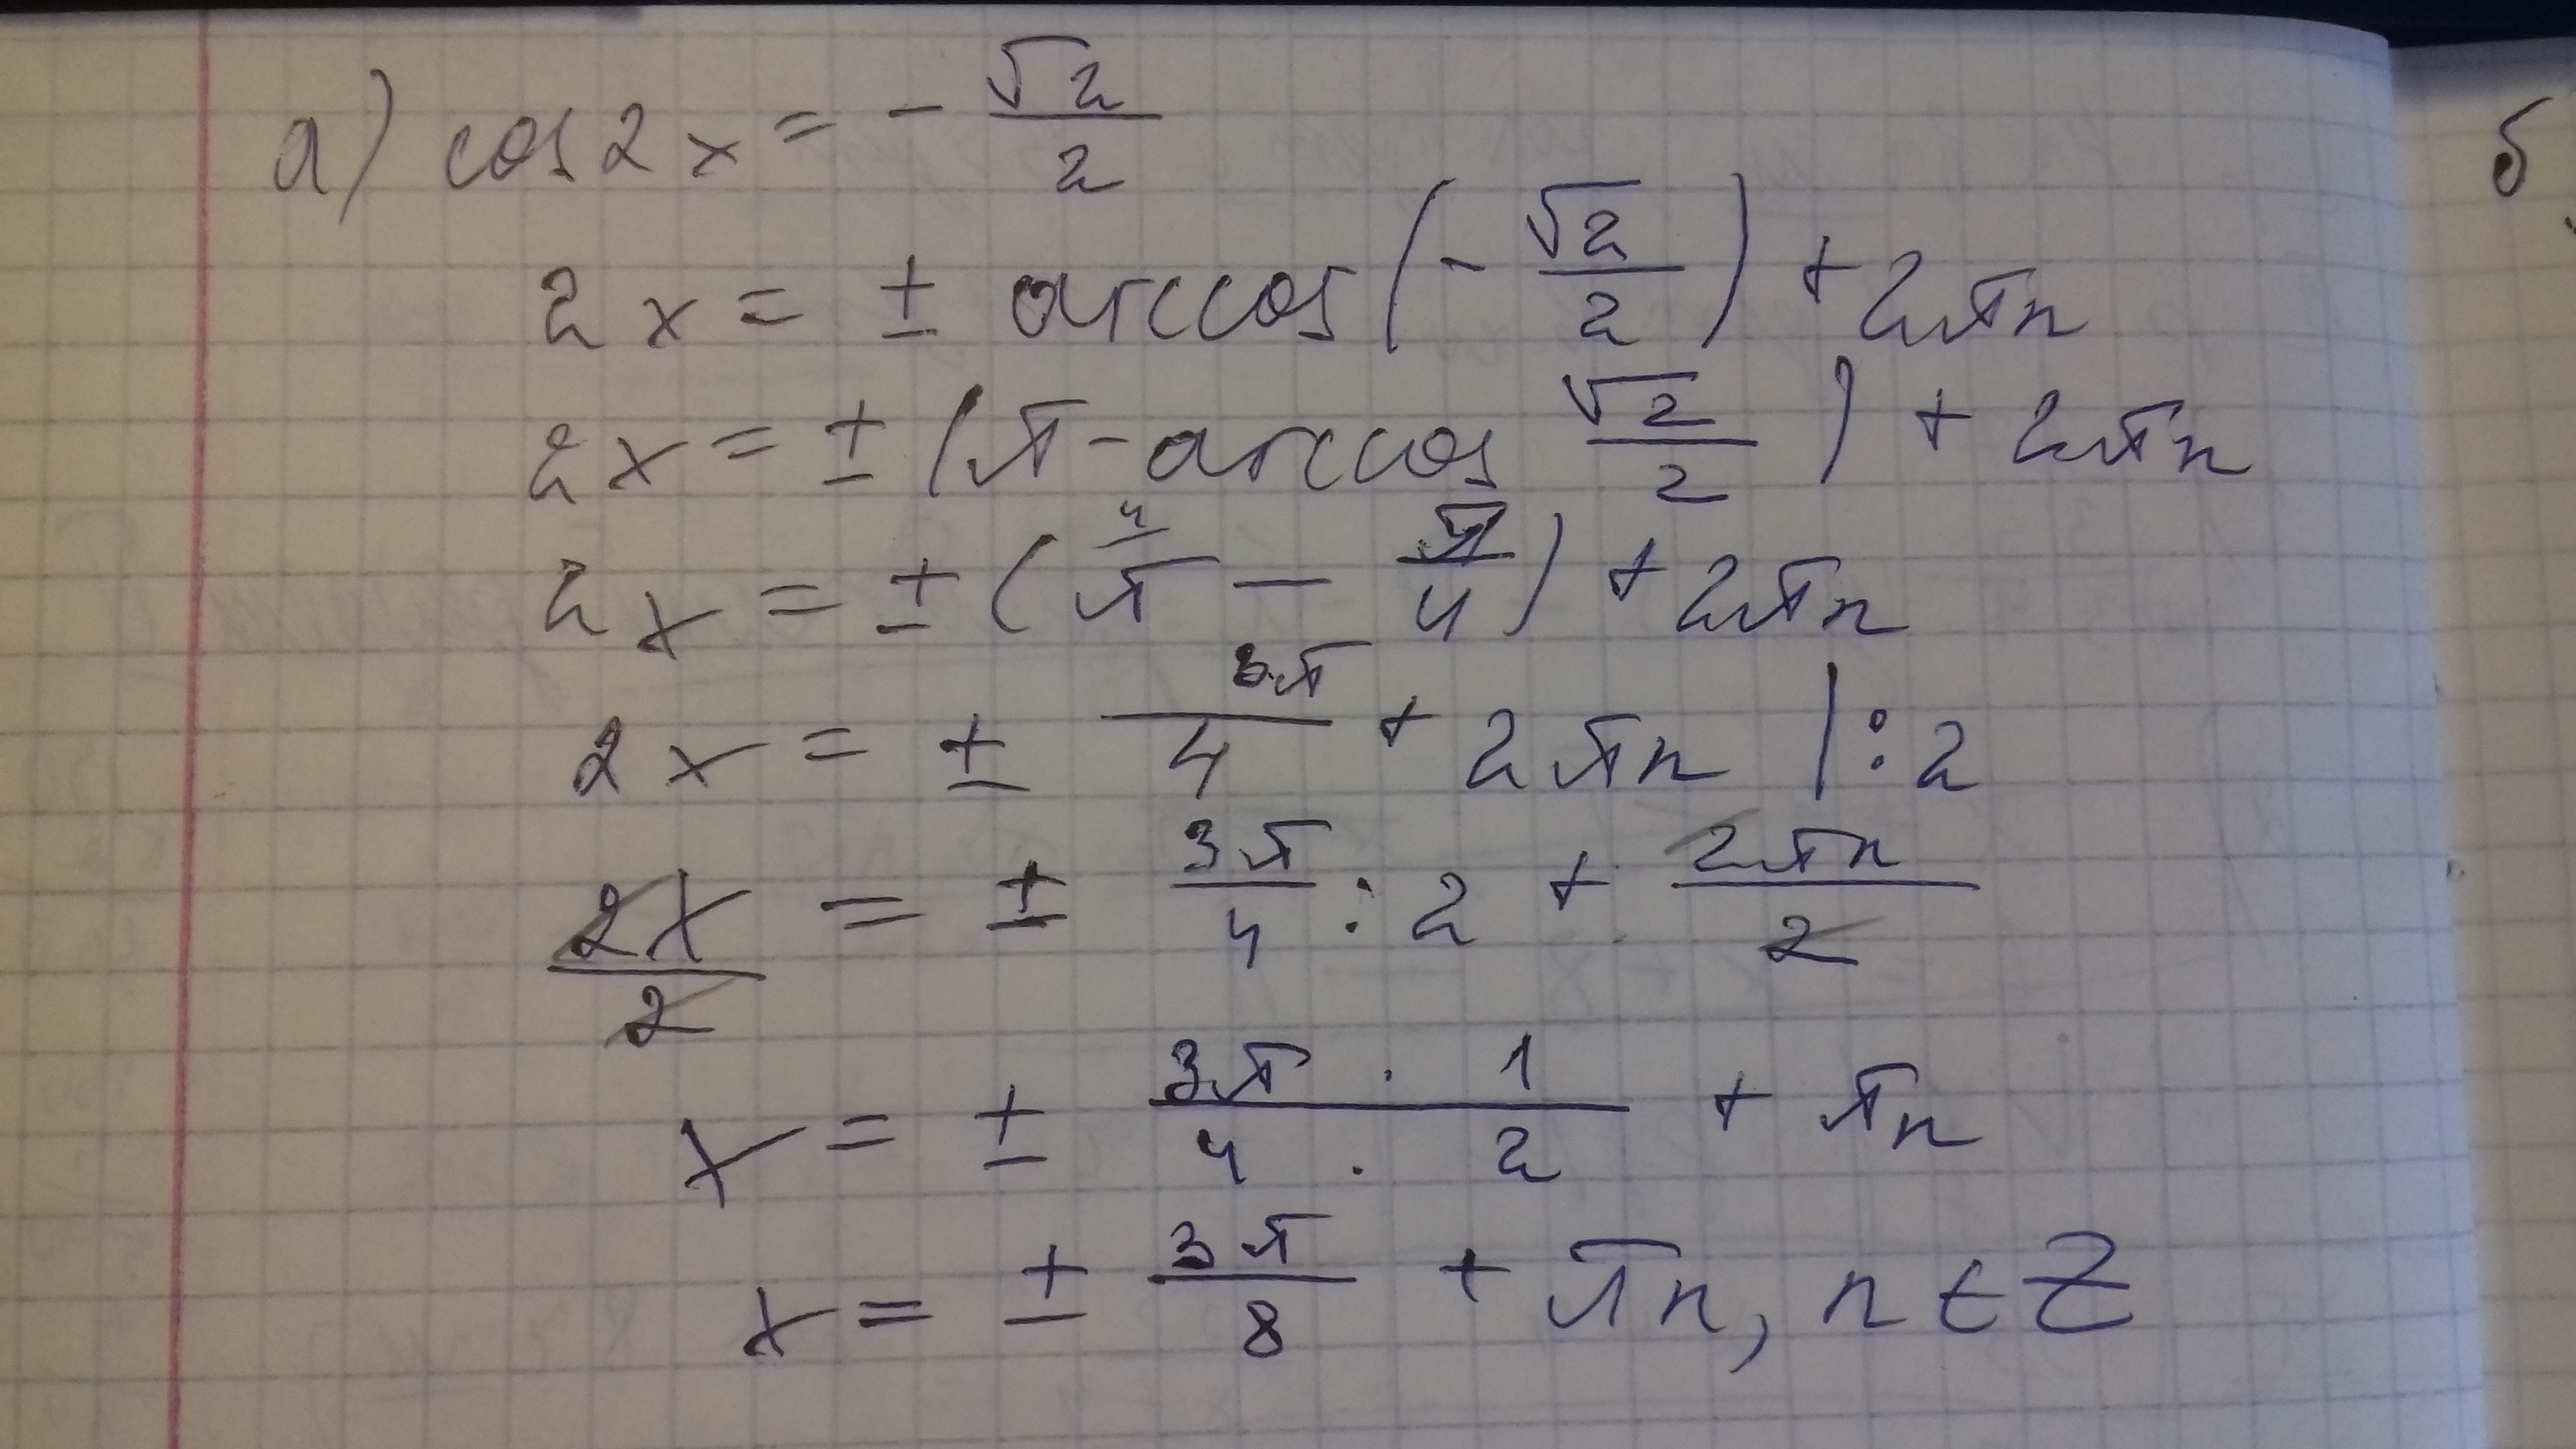 а) cos 2x = - √2/2
2x = ± arccos(- √2/2) + 2πn
2x = ± (π - arccos √2/2) + 2πn
2x = ± (⁴⁄π - π/4) + 2πn
2x = ± 3π/4 + 2πn | : 2
2x/2 = ± 3π/4 : 2 + 2πn/2
x = ± 3π · 1/4 · 2 + πn
x = ± 3π/8 + πn, n ∈ Z
б